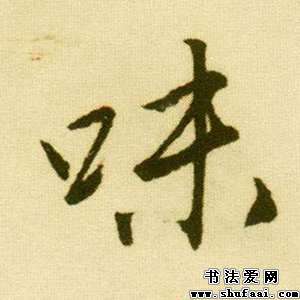 味
书法爱网
www.shufaai.com